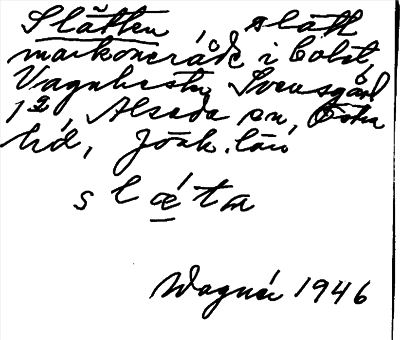 Slätten, slätt
markområde i bohl.
Vagnhester Svensgård
1², Alseda sn, Östra
hd, Jönk. län
slǽta
Wagnér 1946